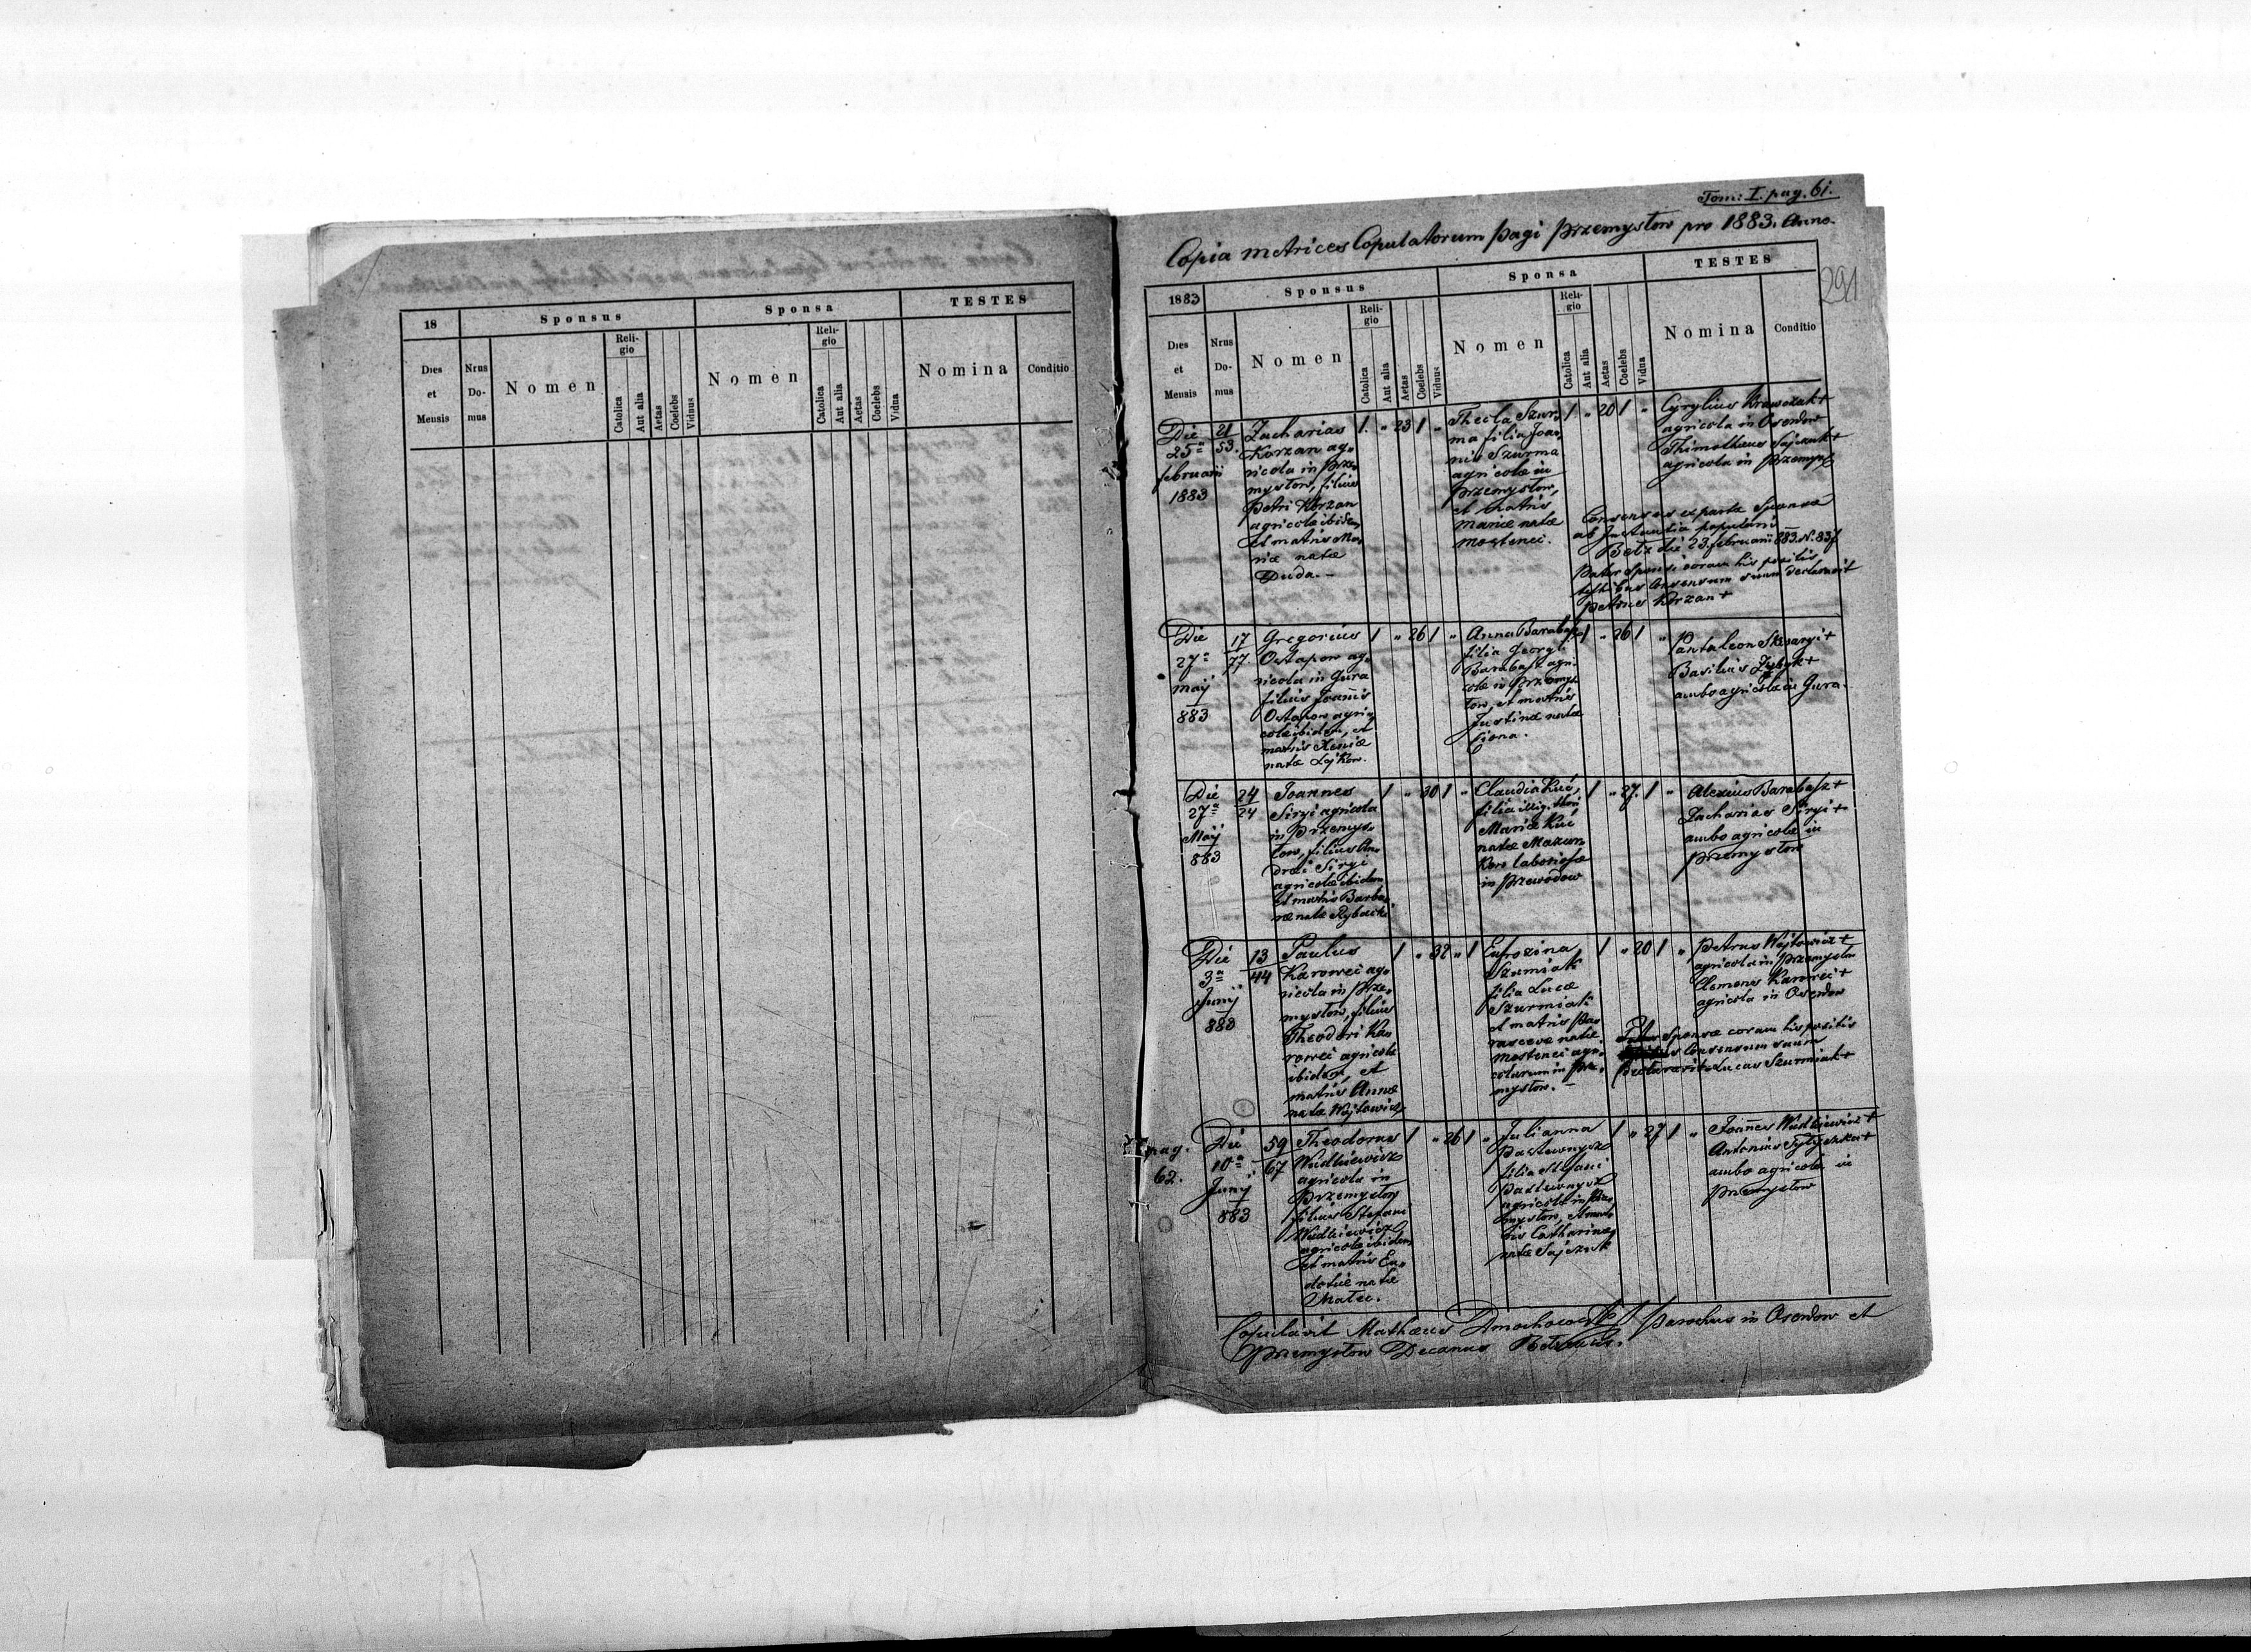 18
Sponsus
Sponsa
TESTES
Dies et Mensis
Nrus Domus
Nomen
Religio
Catolica
Aut alia
Aetas
Coelebs
Viduus
Nomen
Religio
Catolica
Aut alia
Aetas
Coelebs
Vidua
Nomina
Conditio
Tom: I. pag. 61.
Copia metrices Copulatorum pagi Przemysłow pro 1883. Anno.
291
1883
Sponsus
Sponsa
TESTES
Dies et Mensis
Nrus Domus
Nomen
Religio
Catolica
Aut alia
Aetas
Coelebs
Viduus
Nomen
Religio
Catolica
Aut alia
Aetas
Coelebs
Vidua
Nomina
Conditio
Die
25a
februarii
1883
21
53.
Zacharias
Korzan ag-
ricola in Prze-
mysłow, filius
Petri Korzan
agricolæ ibidem
et matris Ma-
riæ natæ
Duda.
1 . " 23 1 "
Thecla Szur-
ma filia Joan-
nis Szurma
agricolæ in
Przemysłow,
et matris
Mariæ natæ
Mostenci.
1 " 20 1 "
Cyrylius Krawczuk +
agricola in Oserdow
Thimotheus Sajczuk +
agricola in Przemysł
Consensus ex parte Sponsæ
Betz die 23. februarii 883. N. 837
Pater Sponsi coram his positis
testibus Consensum suum declaravit
Petrus Korzan +
Die
27a
Maij
883
17
77
Gregorius
Ostapow ag-
ricola in Gura
filius Joannis
Ostapow agri-
colæ ibidem, et
matris Xeniæ
natæ Lejkow.
1 " 26 1 "
Anna Barabasz
filia Georgi
Barabasz agri-
colæ in Przemys-
łow, et matris
Justinæ natæ
1 " 26 1 "
Pantaleon +
Basilius +
ambo agricolæ in Gura.
Die
27a
Maij
883
24
24
Joannes
Siryi agricola
in Przemys-
łow, filius An-
drei Siryi
agricolæ ibidem
et matris Barba-
ræ natæ Rybacki
1 " 30 1 "
Claudia Kuć,
filia illig. thori
Mariæ Kuć
natæ Mazur-
kow laboriosæ
in Przewodow
1 " 27. 1 "
Alexius Barabasz +
Zacharias Siryi +
ambo agricolæ in
Przemysłow
Die
3a
Junij
883
13
44
Paulus
Karowci ag-
ricola in Prze-
mysłow, filius
Theodori Ka-
rowci agricolæ
ibidem, et
matris Annæ
natæ Wojtowicz
1 " 32 " 1
Eufrozina
Szurmiak
filia Lucæ
Szurmiak
et matris Pa-
rascevæ natæ
Mostenci agri-
colarum in Prze-
mysłow.
1 " 20 1 "
Petrus Wojtowicz +
agricola in Przemysłow
Clemens Karowci +
agricola in Oserdow
Pater Sponsæ coram his positis
Consensum suum
Declaravit Lucas Szurmiak +
pag.
62.
Die
10a
Junij
883
59
67
Theodorus
Wudkiewicz
agricola in
Przemysłow
filius Stefani
Wudkiewicz
agricolæ ibidem
et matris Eu-
dokiæ natæ
Matec.
1 " 26 1 "
Julianna
Pasternysz
filia Stefani
Pasternysz
agricolæ in Prze-
mysłow, et mat-
ris Catharinæ
natæ Sajczuk
1 " 27 1 "
Joannes Wudkiewicz +
Antonius +
ambo agricolæ in
Przemysłow
Copulavit Mathæus Dmochowski Parochus in Oserdow et
Przemysłow Decanus